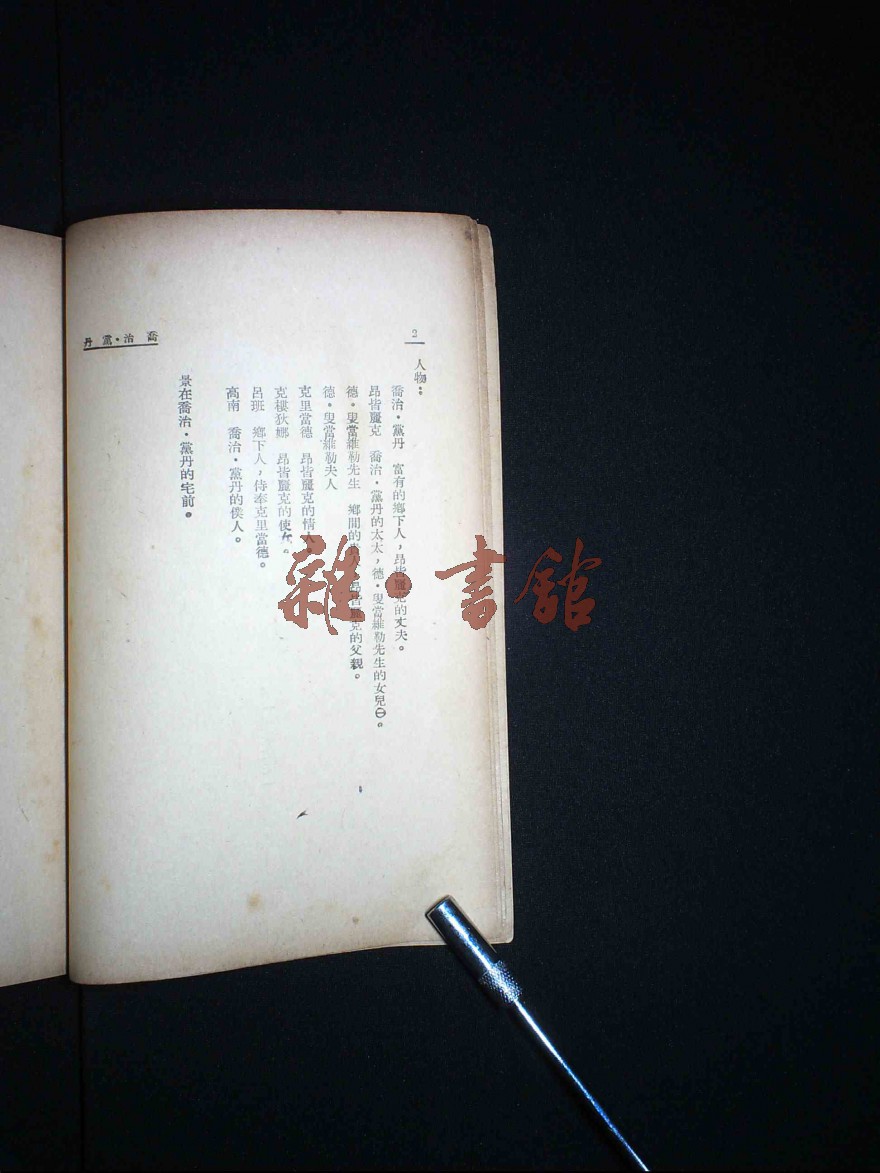 喬治·黨丹
2
人物：
喬治·黨丹　富有的鄉下人，昂皆麗克的丈夫。
昂皆麗克　喬治·黨丹的太太，德·叟當維勒先生的女兒㊀。
德·叟當維勒先生　鄉間的貴人，昂皆麗克的父親。
德·叟當維勒夫人
克里當德　昂皆麗克的情人
克樓狄娜　昂皆麗克的使女。
呂班　鄉下人，侍奉克里當德。
高南　喬治·黨丹的僕人。
景在喬治·黨丹的宅前。
雜·書館